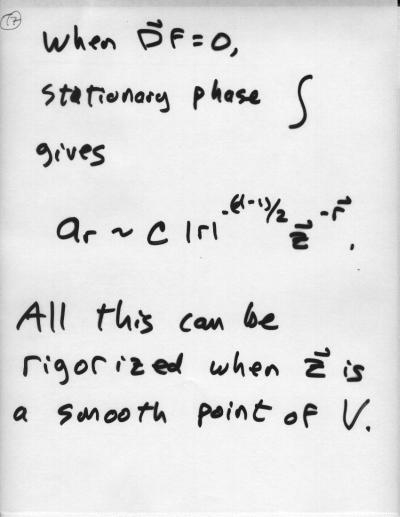 17
When D⃗F=0,
stationary phase ∫
gives
ar ~ C |r|^-(d-1)/2 z⃗^-r⃗.
All this can be
rigorized when z⃗ is
a smooth point of V.